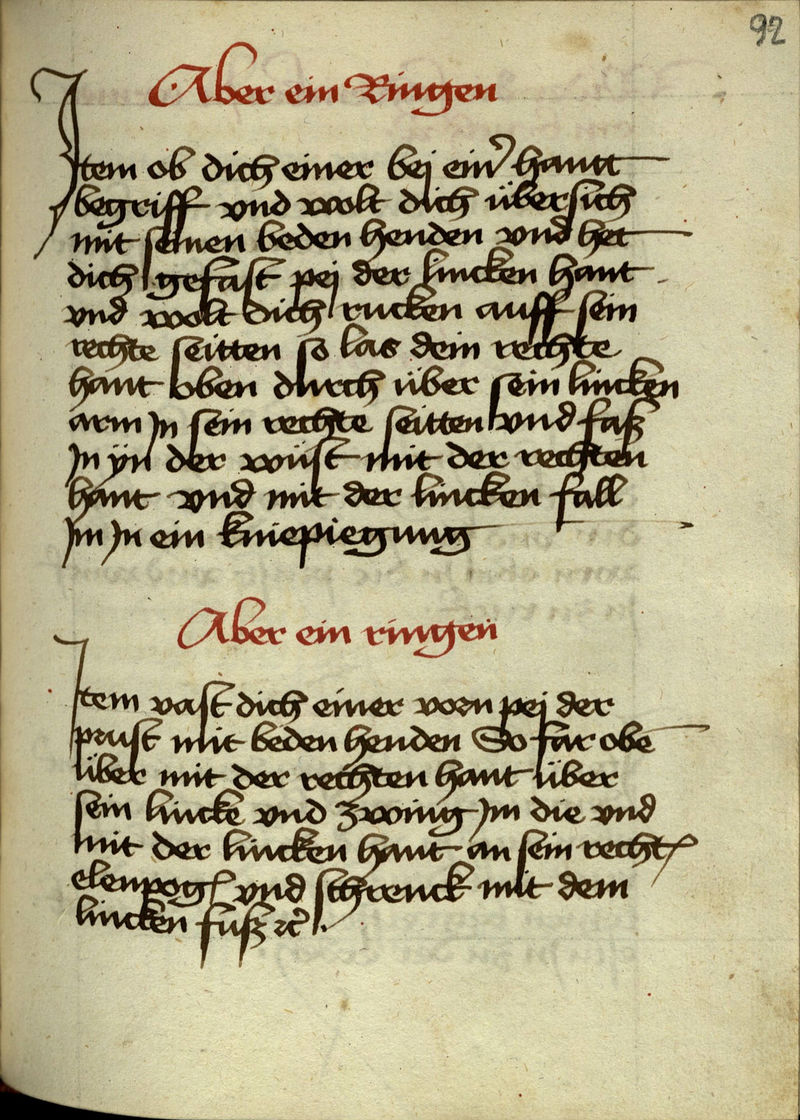 92
Aber ein Ringen
Item ob dich einer bei ein̕ hantt
begriff vnd wolt dich übersich
mit seinen beden henden vnd het
dich gefast pej der lincken hant
vnd wolt dich rucken auff sein
rechte seitten so las dein rechte
hant oben durch über sein lincken
arm Jn sein rechte seitten vnd faß
Jn ÿn der wüst mit der rechten
hant vnd mit der lincken fall
Jm Jn ein kniepiegung
Aber ein ringen
Item vast dich einer vorn pej der
prust mit beden henden So far obē
über mit der rechten hant über
sein lincke vnd zwing Jm die vnd
mit der lincken hant an sein rechtꝭ
elenpogꝭ vnd schrenck mit dem
lincken fuß ꝛc̕ .